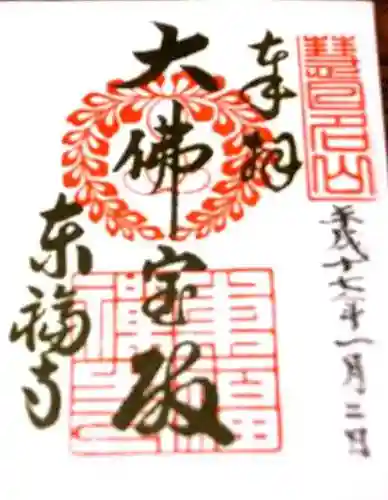 慧日山
奉拝
平成十七年一月二日
大佛宝殿
東福寺